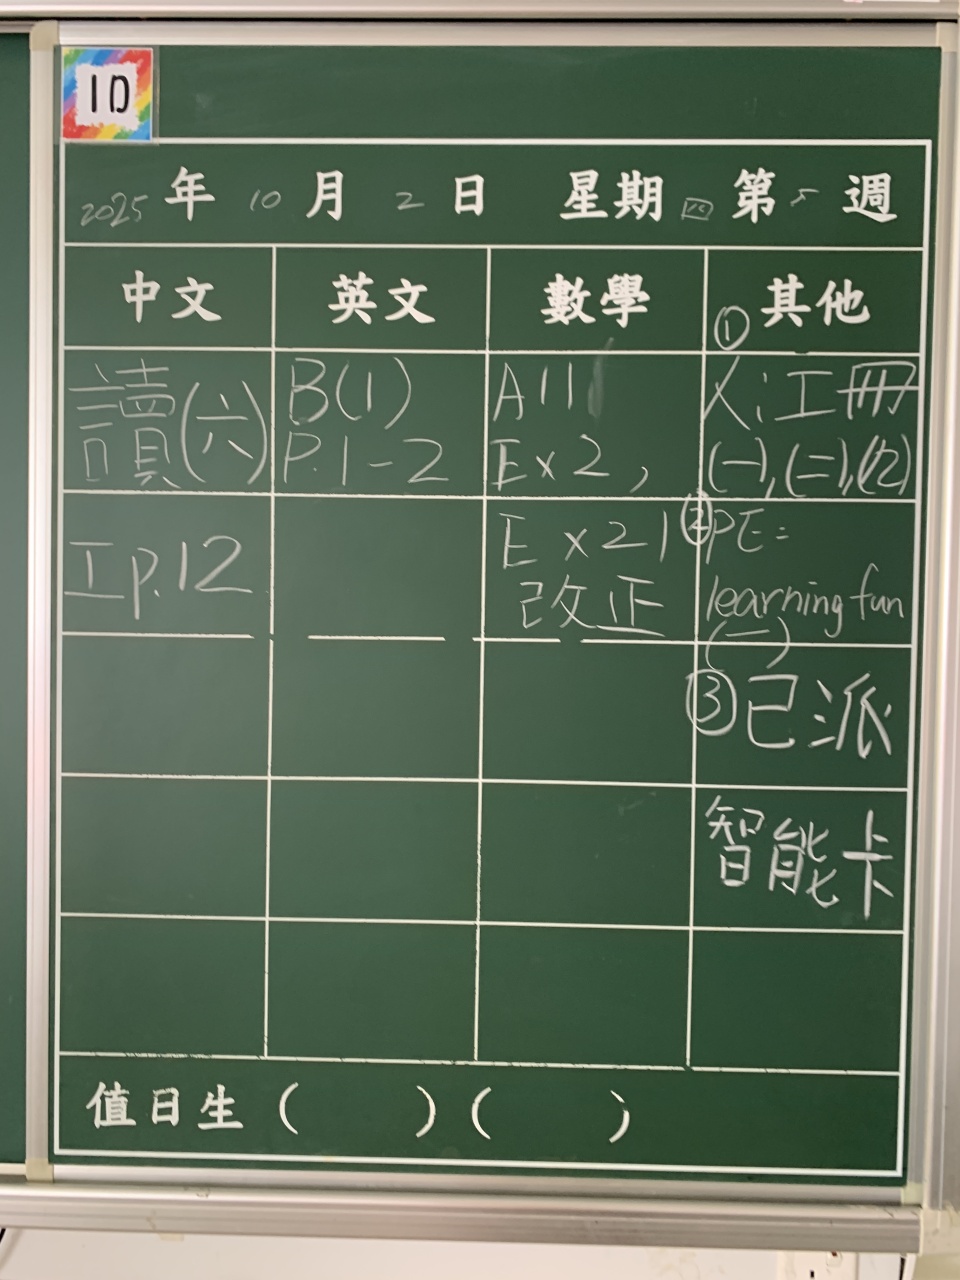 1D
2025年 10月 2日 星期四 第5週
中文 英文 數學 其他
讀(六)
工p.12
B(1)
P.1-2
A11
Ex2,
Ex21
改正
①
人:工冊
(一),(二),(九)
②PE:
learning fun
(一)
③已派
智能卡
值日生 ( ) ( )